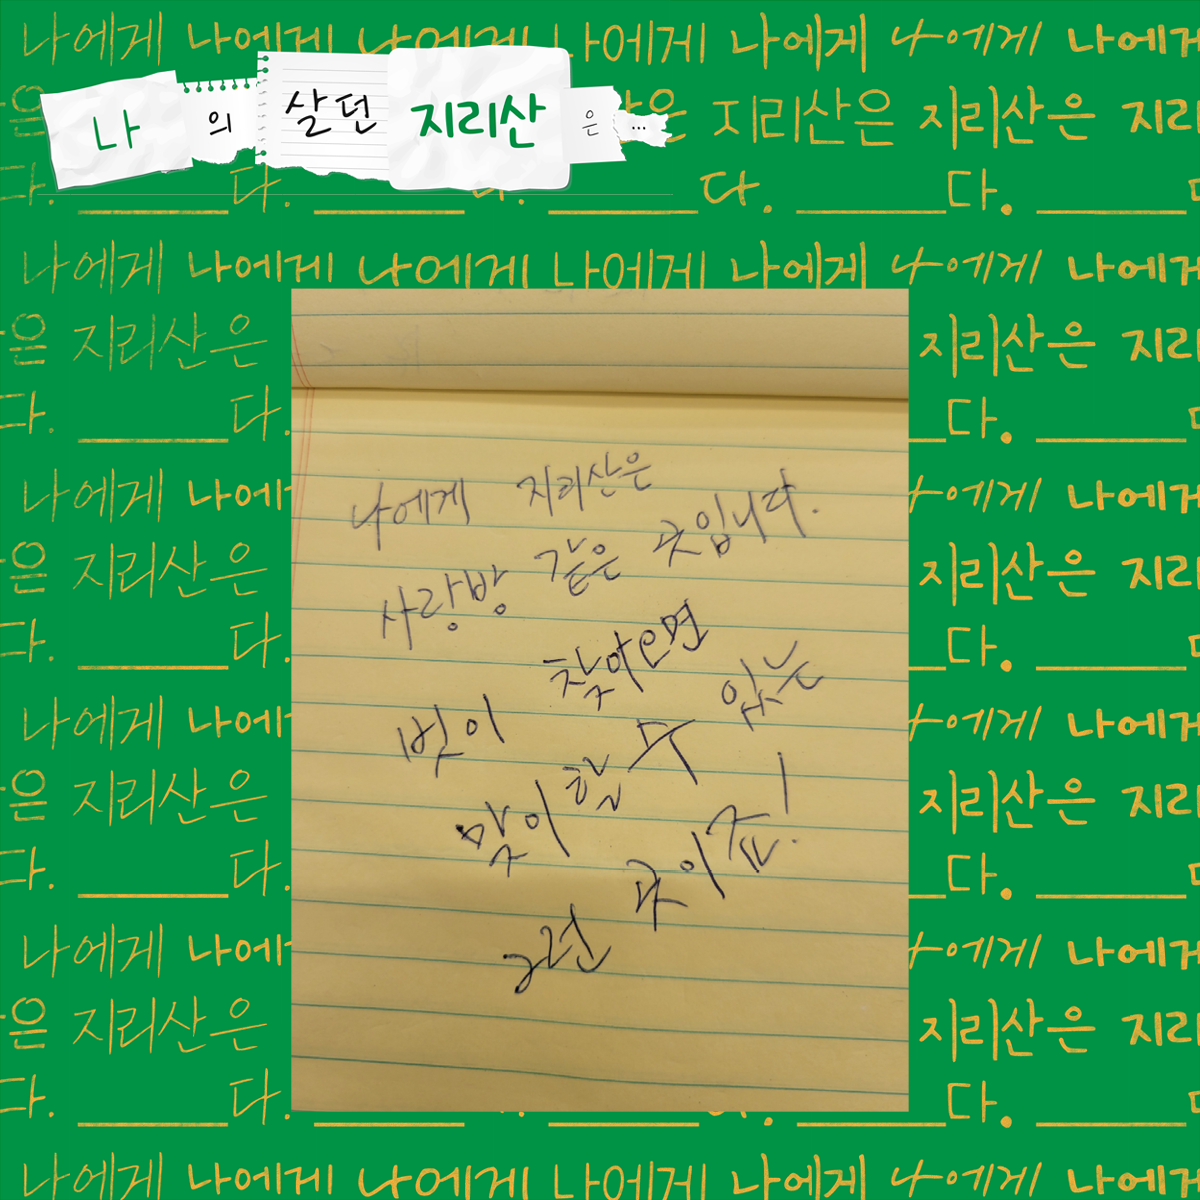 나에게 나에게 나에게 나에게 나에게 나에게 나에게
나의 살던 지리산은...
지리산은 지리산은 지리
다. ______다. ______ ______다. ______다. ______
나에게 나에게 나에게 나에게 나에게 나에게 나에게
은 지리산은 지리산은 지리
다. ______다. 다. ______
나에게 나에게 나에게 나에게
은 지리산은 지리산은 지리
다. ______다. 다. ______
나에게 나에게 나에게 나에게
은 지리산은 지리산은 지리
다. ______다. 다. ______
나에게 나에게 나에게 나에게
은 지리산은 지리산은 지리
다. ______다. ______ ______다. ______다. ______
나에게 나에게 나에게 나에게 나에게 나에게 나에게
나에게 지리산은
사랑방 같은 곳입니다.
벗이 찾아오면
맞이할 수 있는
그런 곳이죠!